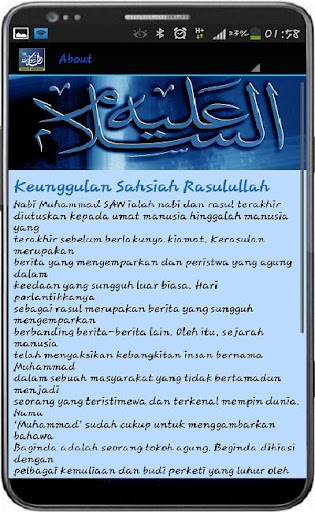 33% 01:58
About
عليه السلام
Keunggulan Sahsiah Rasulullah
Nabi Muhammad SAW ialah nabi dan rasul terakhir
diutuskan kepada umat manusia hinggalah manusia
yang
terakhir sebelum berlakunya kiamat. Kerasulan
merupakan
berita yang mengemparkan dan peristwa yang agung
dalam
keedaan yang sungguh luar biasa. Hari
perlantikkanya
sebagai rasul merupakan berita yang sungguh
mengemparkan
berbanding berita-berita lain. Oleh itu, sejarah
manusia
telah menyaksikan kebangkitan insan bernama
Muhammad
dalam sebuah masyarakat yang tidak bertamadun
menjadi
seorang yang teristimewa dan terkenal mempin dunia.
Namu
'Muhammad' sudah cukup untuk menggambarkan
bahawa
Baginda adalah seorang tokoh agung. Beginda dihiasi
dengan
pelbagai kemuliaan dan budi perketi yang luhur oleh